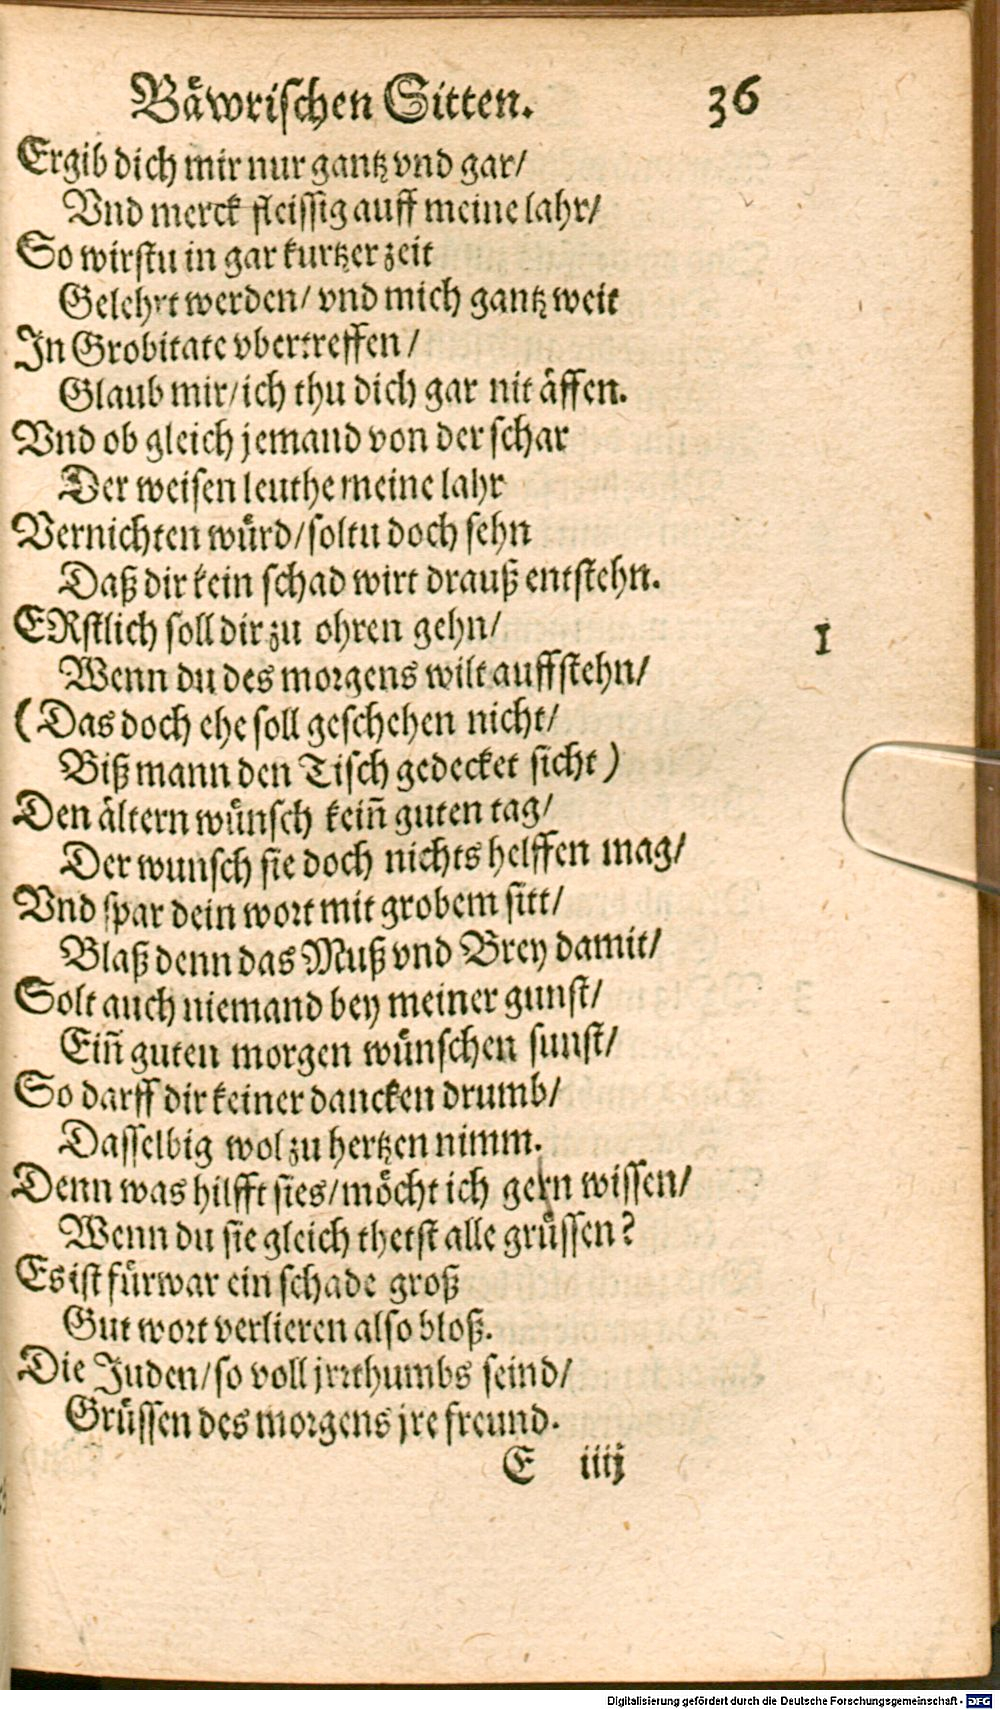 Bäwrischen Sitten. 36
Ergib dich mir nur gantz vnd gar/
Vnd merck fleissig auff meine lahr/
So wirstu in gar kurtzer zeit
Gelehrt werden/ vnd mich gantz weit
In Grobitate vbertreffen/
Glaub mir/ich thu dich gar nit äffen.
Vnd ob gleich jemand von der schar
Der weisen leuthe meine lahr
Vernichten würd/soltu doch sehn
Daß dir kein schad wirt drauß entstehn.
ERstlich soll dir zu ohren gehn/ 1
Wenn du des morgens wilt auffstehn/
(Das doch ehe soll geschehen nicht/
Biß mann den Tisch gedecket sicht)
Den ältern wünsch kein̄ guten tag/
Der wunsch sie doch nichts helffen mag/
Vnd spar dein wort mit grobem sitt/
Blaß denn das Muß vnd Brey damit/
Solt auch niemand bey meiner gunst/
Ein̄ guten morgen wünschen sunst/
So darff dir keiner dancken drumb/
Dasselbig wol zu hertzen nimm.
Denn was hilfft sies/möcht ich gern wissen/
Wenn du sie gleich thetst alle grüssen?
Es ist fürwar ein schade groß
Gut wort verlieren also bloß.
Die Juden/so voll jrrthumbs seind/
Grüssen des morgens jre freund.
E iiij
Digitalisierung gefördert durch die Deutsche Forschungsgemeinschaft - DFG